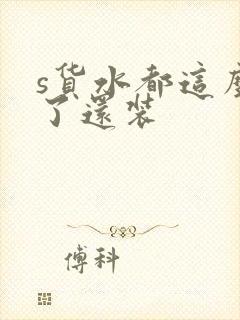 s货水都這麼
了還装
傅科